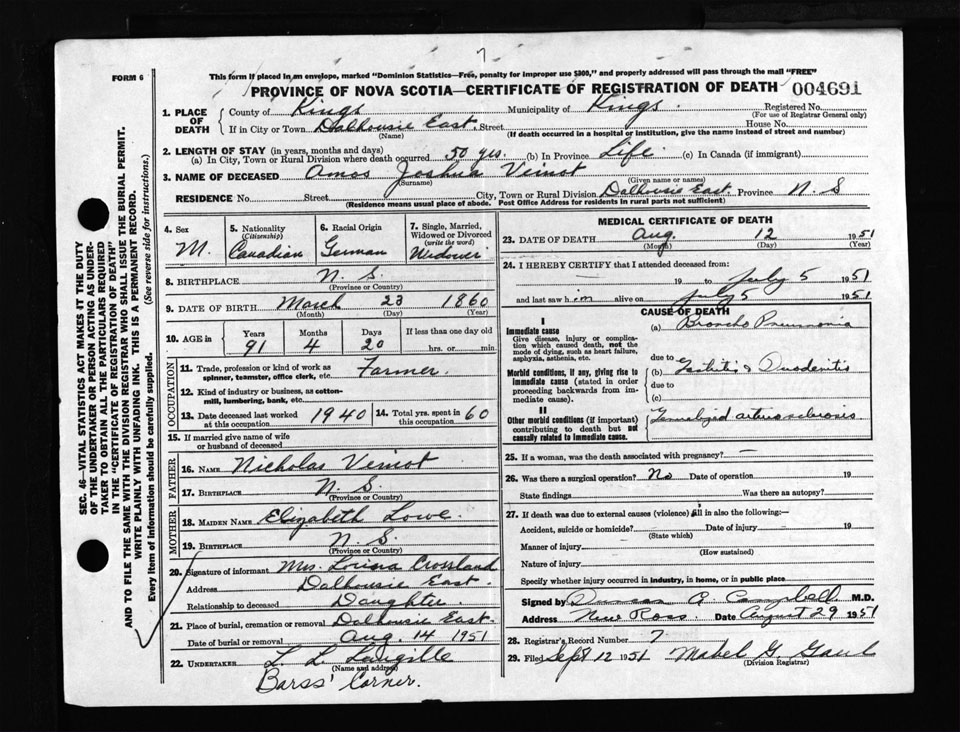 7
FORM 6
This form if placed in an envelope, marked "Dominion Statistics—Free, penalty for improper use $300," and properly addressed will pass through the mail "FREE"
PROVINCE OF NOVA SCOTIA—CERTIFICATE OF REGISTRATION OF DEATH 004691
SEC. 46—VITAL STATISTICS ACT MAKES IT THE DUTY
OF THE UNDERTAKER OR PERSON ACTING AS UNDER-
TAKER TO OBTAIN ALL THE PARTICULARS REQUIRED
IN THE "CERTIFICATE OF REGISTRATION OF DEATH"
AND TO FILE THE SAME WITH THE DIVISION REGISTRAR WHO SHALL ISSUE THE BURIAL PERMIT.
WRITE PLAINLY WITH UNFADING INK. THIS IS A PERMANENT RECORD.
Every item of information should be carefully supplied. (See reverse side for instructions.)
1. PLACE OF DEATH
County of Kings Municipality of Kings. Registered No.
(For use of Registrar General only)
If in City or Town Dalhousie East, Street House No.
(Name) (If death occurred in a hospital or institution, give the name instead of street and number)
2. LENGTH OF STAY (in years, months and days)
(a) In City, Town or Rural Division where death occurred 50 yrs. (b) In Province Life. (c) In Canada (if immigrant)
3. NAME OF DECEASED Amos Joshua Veinot
(Surname) (Given name or names)
RESIDENCE No. Street City, Town or Rural Division Dalhousie East, Province N. S
(Residence means usual place of abode. Post Office Address for residents in rural parts not sufficient)
4. Sex
M.
5. Nationality
(Citizenship)
Canadian
6. Racial Origin
German
7. Single, Married,
Widowed or Divorced
(write the word)
Widower
8. BIRTHPLACE N. S.
(Province or Country)
9. DATE OF BIRTH March 23 1860
(Month) (Day) (Year)
10. AGE in
Years Months Days If less than one day old
91 4 20 hrs. or min.
OCCUPATION
11. Trade, profession or kind of work as
spinner, teamster, office clerk, etc. Farmer.
12. Kind of industry or business, as cotton-
mill, lumbering, bank, etc.
13. Date deceased last worked
at this occupation 1940
14. Total yrs. spent in
this occupation 60
15. If married give name of wife
or husband of deceased
FATHER
16. NAME Nicholas Veinot
17. BIRTHPLACE N. S.
(Province or Country)
MOTHER
18. MAIDEN NAME Elizabeth Lowe.
19. BIRTHPLACE N. S.
(Province or Country)
20. Signature of informant Mrs. Lovinia Crossland
Address Dalhousie East.
Relationship to deceased Daughter.
21. Place of burial, cremation or removal Dalhousie East.
Date of burial or removal Aug. 14 1951
22. UNDERTAKER L. L. Langille
(Name and address)
Barss' Corner.
MEDICAL CERTIFICATE OF DEATH
23. DATE OF DEATH Aug. 12 1951
(Month) (Day) (Year)
24. I HEREBY CERTIFY that I attended deceased from:
19 to July 5 1951
and last saw him alive on July 5 1951
CAUSE OF DEATH
I
Immediate cause
Give disease, injury or complica-
tion which caused death, not the
mode of dying, such as heart failure,
asphyxia, asthenia, etc.
(a) Broncho Pneumonia
due to
Morbid conditions, if any, giving rise to
immediate cause (stated in order
proceeding backwards from im-
mediate cause).
(b) Gastritis & Duodenitis
due to
(c)
II
Other morbid conditions (if important)
contributing to death but not
causally related to immediate cause.
Generalized arteriosclerosis
25. If a woman, was the death associated with pregnancy? —
26. Was there a surgical operation? No Date of operation 19
State findings Was there an autopsy?
27. If death was due to external causes (violence) fill in also the following:—
Accident, suicide or homicide? Date of injury 19
(State which)
Manner of injury
(How sustained)
Nature of injury
Specify whether injury occurred in industry, in home, or in public place
Signed by Duncan A. Campbell M.D.
Address New Ross. Date August 29 1951
28. Registrar's Record Number 7
29. Filed Sept 12 1951 Mabel G. Gaul
(Division Registrar)